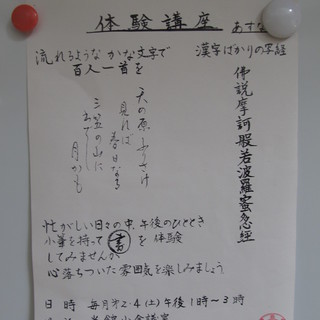 体験講座
あすな
流れるような かな文字で
百人一首を
漢字ばかりの写経
佛説摩訶般若波羅蜜多心経
天の原ふりさけ
見れば
春日なる
三笠の山に
いでし
月かも
忙がしい日々の中、午後のひととき
小筆を持って 書 を 体験
してみませんか
心落ちついた雰囲気を楽しみましょう
日 時 毎月第2・4(土)午後1時～3時